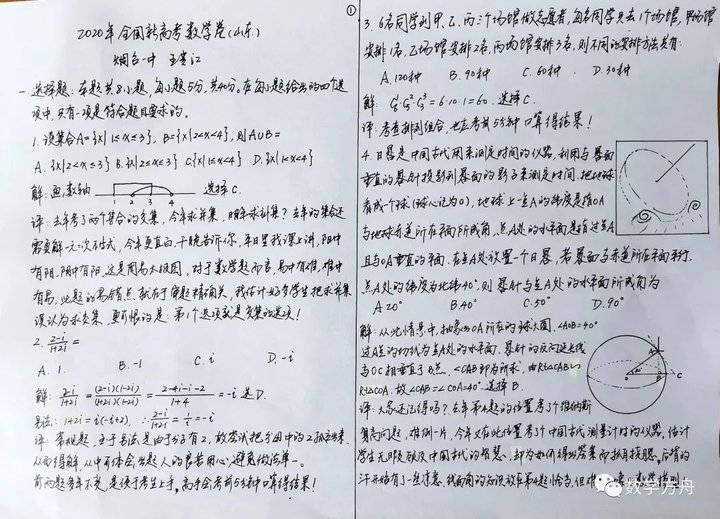 2020年全国新高考数学卷(山东)
烟台一中
一.选择题:本题共8小题,每小题5分,共40分,在每小题给出的四个选
项中,只有一项是符合题目要求的。
1.设集合A={x|1≤x≤3},B={x|2<x<4},则A∪B=
A.{x|2<x≤3} B.{x|2≤x≤3} C.{x|1≤x<4} D.{x|1<x<4}
解:画数轴 1 2 3 4 选择C.
评:去年考了两个集合的交集,今年求并集,明年求补集?去年的集合还
需要解一元二次不等式,今年更直白,干脆告诉你,年日里我课上讲,阳中
有阴,阴中有阳,这是周易太极图,对于数学题而言,易中有难,难中
有易,此题的易错点就在于审题精确关,我估计好多学生把求并集
误认为求交集,更可恨的是:第1个选项就是交集的选项!
2. 2-i/1+2i =
A. 1. B. -1 C. i D. -i
解: 2-i/1+2i = (2-i)(1-2i)/(1+2i)(1-2i) = 2-4i-i-2/1+4 = -i 选D.
另法: 1+2i=i(-i+2), ∴ 2-i/1+2i = 1/i = -i
评:常规题,对于另法是由于分子有2,故尝试把分母中的2
从而得解,从中可体会出题人的良苦用心,避免做法单一。
前两题多年不变,是便于考生上手,高手会考前5分钟口算得结果!
①
3. 6名同学到甲、乙、丙三个场馆做志愿者,每名同学只去1个场馆,甲场馆
安排1名,乙场馆安排2名,丙场馆安排3名,则不同的安排方法共有:
A.120种 B.90种 C.60种 D.30种
解: C₆¹C₅²C₃³=6·10·1=60. 选择C.
评:考查排列组合,也在考前5分钟口算得结果!
4. 日晷是中国古代用来测定时间的仪器,利用与晷面
垂直的晷针投影到晷面的影子来测定时间.把地球
看成一个球(球心记为O),地球上一点A的纬度是指OA
与地球赤道所在平面所成角,点A处的水平面是指过点A
且与OA垂直的平面.在点A处放置一个日晷,若晷面与赤道所在平面平行.
点A处的纬度为北纬40°,则晷针与点A处的水平面所成角为
A.20° B.40° C.50° D.90°
解:从此情景中,抽象出OA所在的球大圆.∠AOB=40°
过A点的切线为点A处的水平面.晷针的反向延长线
与OC相垂直于B点.∠CAB即为所求,由Rt△CAB∽
Rt△COA.故∠CAB=∠COA=40°.选择B.
A
O B C
评:大家还记得吗?去年第4题的位置考了维纳斯
身高问题,难倒一片,今年又在此位置考了中国古代测量计时的仪器,估计
学生无暇顾及中国古代的智慧,却为如何得出答案而抓耳挠腮,后背的
汗开始有了一丝凉意.
数学方舟